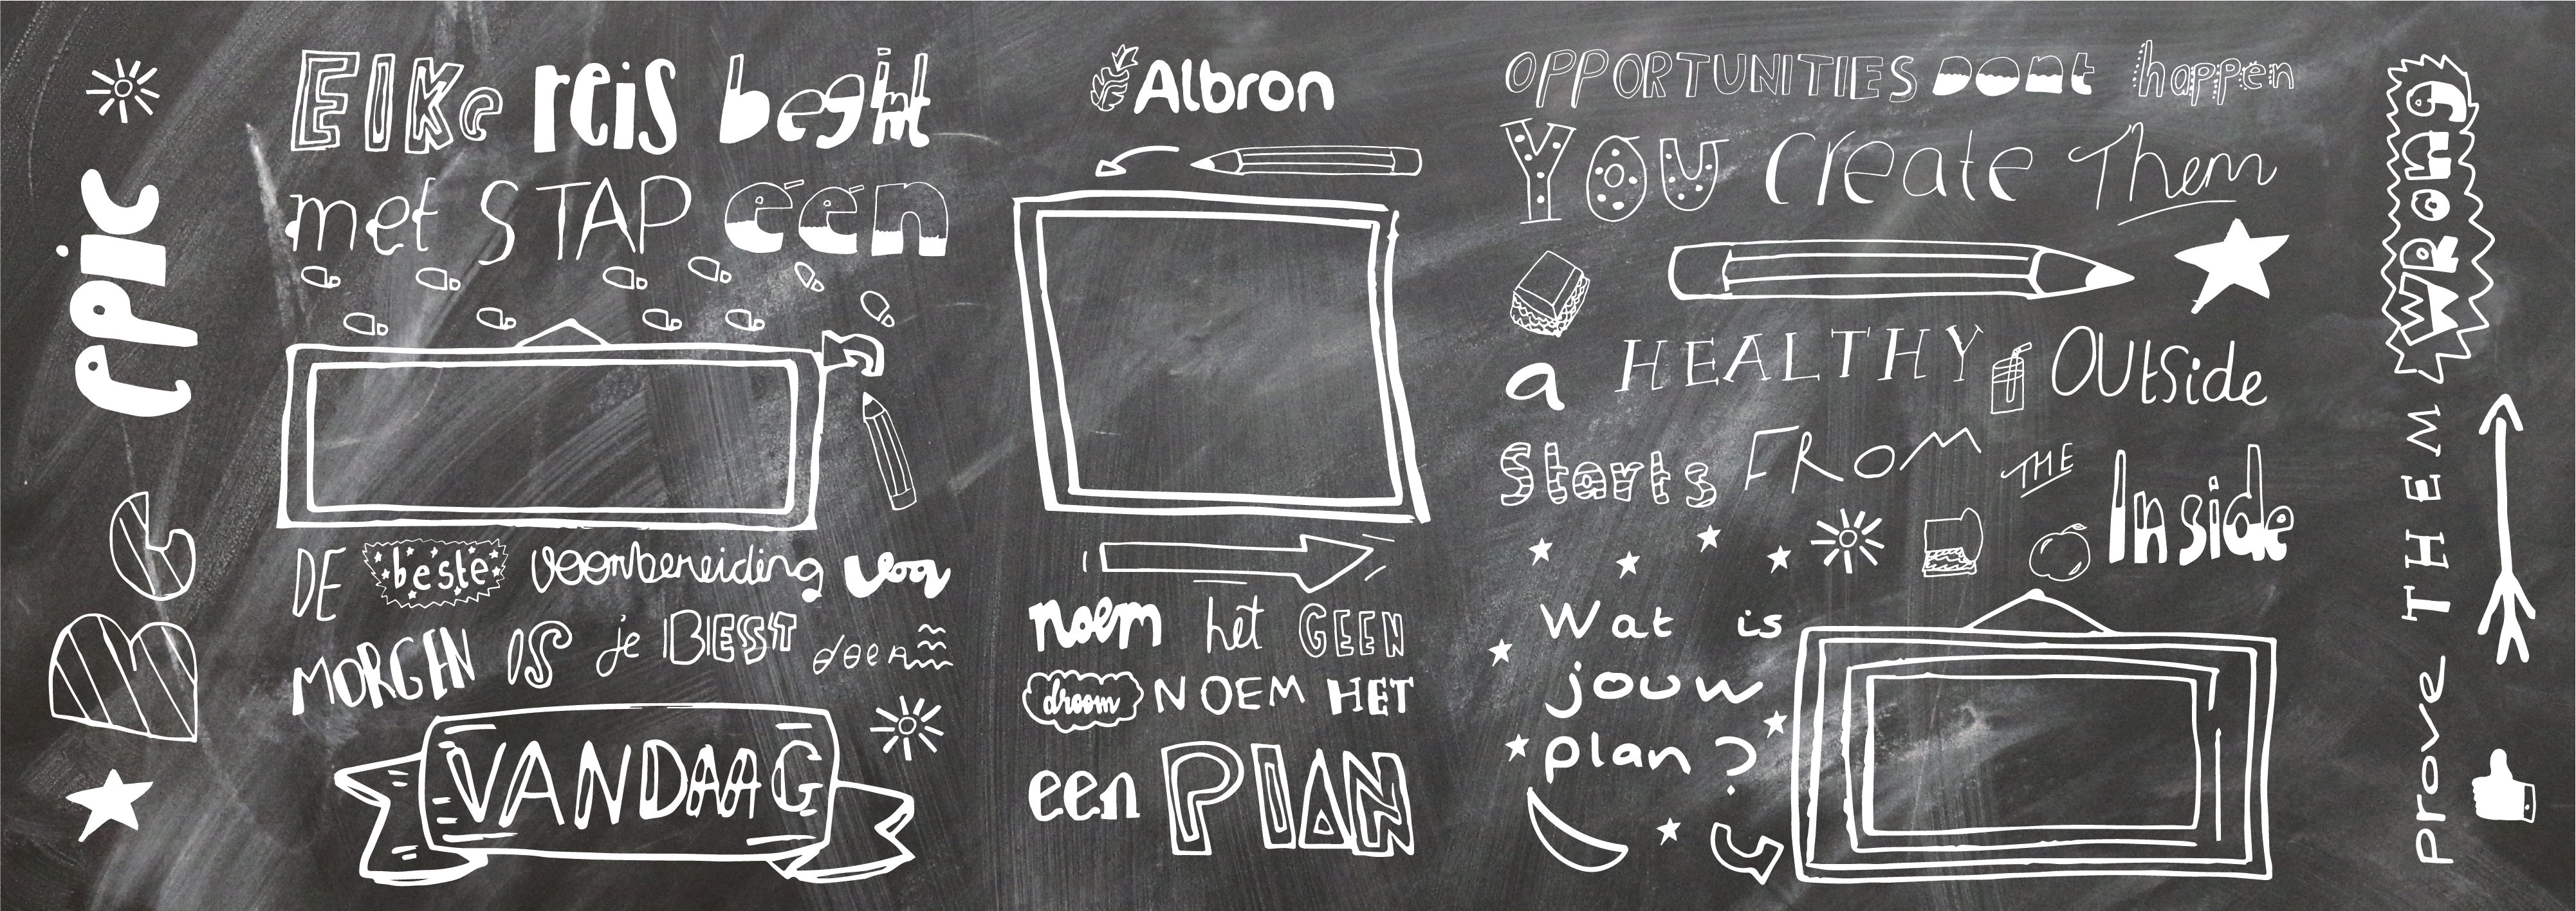 Be epic
Elke reis begint
met STAP één
DE beste voorbereiding voor
MORGEN IS je BEST doen
VANDAAG
Albron
noem het GEEN
droom NOEM HET
een PLAN
OPPORTUNITIES DONT happen
YOU create Them
a HEALTHY OUtside
Starts FROM THE
Inside
Wat is
jouw
plan?
prove THEM WRONG